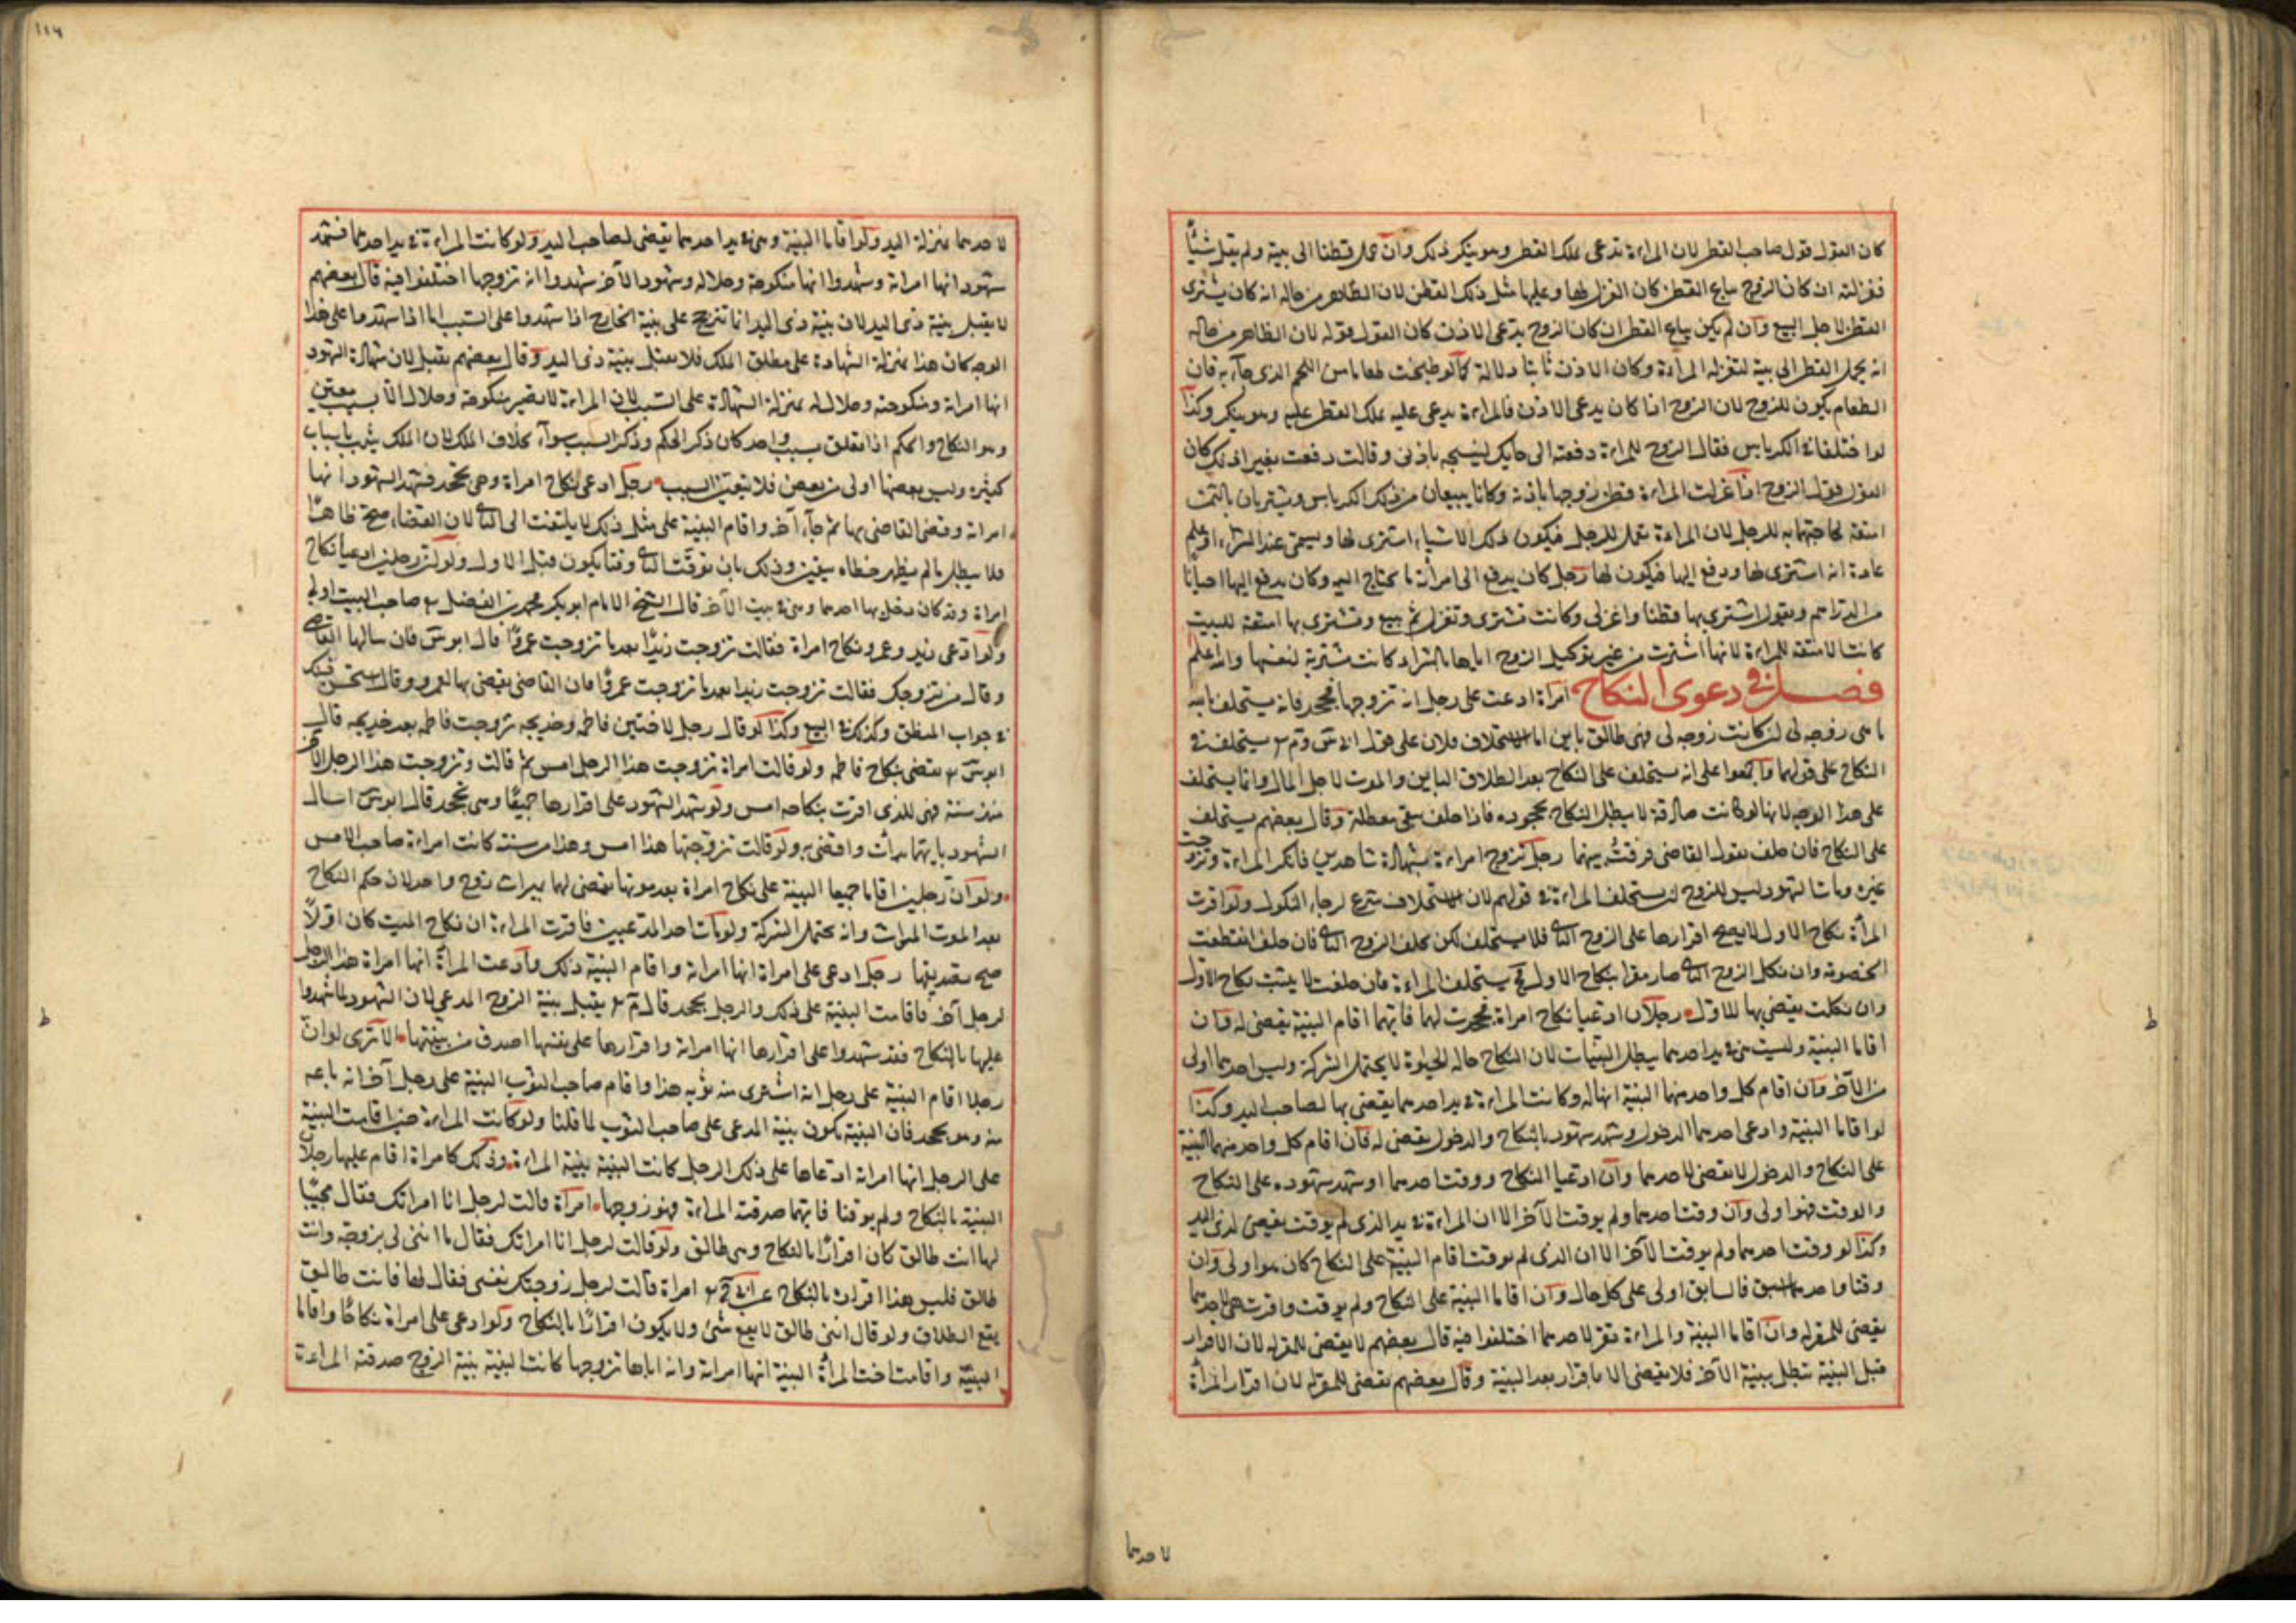 كان القول قول صاحب القطن لان المراءة تدعى عليك القطن وهو ينكر ذلك وان حمل قطنا الى بيته ولم يقل شيئًا
فغزلته ان كان الزوج يبايع القطن كان الغزل لها وعليها مثل ذلك القطن لان الظاهر من حاله انه كان يشترى
القطن لاجل البيع وان لم يكن بياع القطن ان كان الزوج يدعى الاذن كان القول قوله لان الظاهر من حاله
انه يحمل القطن الى بيته لتغزله المراءة وكان الاذن ثابتا دلالة كما لو طبخت طعاما من اللحم الذى جآء به فان
الطعام يكون للزوج لان الزوج اذا كان يدعى الاذن فالمراءة يدعى عليه ملك القطن عليه وهو ينكر وكذا
لو اختلفا فى الكرباس فقال الزوج للمراءة دفعته الى حايك لينسجه باذنى وقالت دفعت بغير اذنك كان
القول قول الزوج اذا غزلت المراءة قطن زوجها باذنه وكانا يبيعان من ذلك الكرباس ويشتريان بالثمن
امتعة لحاجتهما به للرجل لان المراءة تعمل للرجل فيكون ذلك الاشياء اشترى لها ويسمى عند الشراء او يعلم
عادة انه اشترى لها ودفع اليها فيكون لها رجل كان يدفع الى امرأته ما يحتاج اليه وكان يدفع اليها احيانًا
من الدراهم ويقول اشترى بها قطنا واغزلى وكانت تشترى وتغزل ثم تبيع وتشترى بها امتعة للبيت
كانت الامتعة للمراءة لانها اشترت من غير توكيل الزوج اياها بالشراء كانت مشترية لنفسها والله اعلم
فصل فى دعوى النكاح امرأة ادعت على رجل انه تزوجها فجحد فانه يستحلف بالله
ما هى زوجه لى وان كانت زوجه لى فهى طالق باين اما استحلاف فلان على قول ابى س وم ر يستحلف فى
النكاح على قولهما واجمعوا على انه يستحلف على النكاح بعد الطلاق الباين والموت لاجل المال وانما يستحلف
على هذا الوجه لانها لو كانت صادقة لا يبطل النكاح بجحوده فاذا حلف بقى معطلة وقال بعضهم يستحلف
على النكاح فان حلف يقول القاضى فرقت بينهما رجل تزوج امراءة بشهادة شاهدين فانكر المراءة وتزوجت
غيره ومات الشهود ليس للزوج ان يستحلف المراءة فى قولهم لان الاستحلاف شرع لرجاء النكول ولو اقرت
المرأة بنكاح الاول لا يصح اقرارها على الزوج الثانى فلا يستحلف لكن يحلف الزوج الثانى فان حلف انقطعت
الخصومة وان نكل الزوج الثانى صار مقرا بنكاح الاول فح يستحلف المراءة فان حلفت لا يثبت نكاح الاول
وان نكلت يقضى بها للاول رجلان ادعيا نكاح امراة فجحدت لهما فايهما اقام البينة يقضى له وان
اقاما البينة وليست هى فى يد احدهما يبطل البينات لان النكاح حالة الحياوة لا يحتمل الشركة وليس احدهما اولى
من الآخر وان اقام كل واحد منهما البينة انها له وكانت المراءة فى يد احدهما يقضى بها لصاحب اليد وكذا
لو اقاما البينة وادعى احدهما الدخول وشهد شهوده بالنكاح والدخول يقضى له فان اقام كل واحد منهما البينة
على النكاح والدخول لا يقضى لاحدهما وان ادعيا النكاح ووقت احدهما او شهد شهوده على النكاح
والوقت فهو اولى وان وقت احدهما ولم يوقت الآخر الا ان المراءة فى يد الذى لم يوقت يقضى لذى اليد
وكذا لو وقت احدهما ولم يوقت الآخر الا ان الذى لم يوقت اقام البينة على النكاح كان هو اولى وان
وقتا واحدهما اسبق فالسابق اولى على كل حال وان اقاما البينة على النكاح ولم يوقت واقرت هى لاحدهما
يقضى للمقر له وان اقاما البينة والمراءة تقر لاحدهما اختلفوا فيه قال بعضهم لا يقضى للمقر له لان الاقرار
قبل البينة تبطل ببينة الآخر فلا يقضى الا باقرار بعد البينة وقال بعضهم يقضى للمقر له لان اقرار المرأة
لاحدهما
١١٤
لاحدهما بمنزلة اليد ولو اقاما البينة وهى فى يد احدهما يقضى لصاحب اليد ولو كانت المراءة فى يد احدهما فشهد
شهود انها امراته وشهدوا انها منكوحته وحلاله وشهود الآخر شهدوا انه تزوجها اختلفوا فيه قال بعضهم
لا يقبل بينة ذى اليد لان بينة ذى اليد انما تترجح على بينة الخارج اذا شهدوا على السبب اما اذا شهدوا على هذا
الوجه كان هذا بمنزلة الشهادة على مطلق الملك فلا يقبل بينة ذى اليد وقال بعضهم يقبل لان شهادة الشهود
انها امراته ومنكوحته وحلال له بمنزلة الشهادة على السبب لان المراءة لا يصير منكوحة وحلالا الا بسبب معين
وهو النكاح والحكم اذا تعلق بسبب واحد كان ذكر الحكم وذكر السبب سوآء بخلاف الملك لان الملك يثبت باسباب
كثيرة وليس بعضها اولى من بعض فلا يتعين السبب رجل ادعى نكاح امراة وهى تجحد فشهد الشهود انها
امراته وقضى القاضى بها ثم جآء آخر واقام البينة على مثل ذلك لا يلتفت الى الثانى لان القضاء صح ظاهرًا
فلا يبطل ما لم يظهر خطاه بيقين وذلك بان يوقت الثانى وقتا يكون قبل الاول ولو ان رجلين ادعيا نكاح
امراة وقد كان دخل بها احدهما وهى فى بيت الآخر قال الشيخ الامام ابو بكر محمد بن الفضل ر صاحب البيت اولى
ولو ادعى زيد وعمرو نكاح امراة فقالت تزوجت زيدًا بعد ما تزوجت عمروًا قال ابو س فان سالها القاضى
وقال من تزوجك فقالت تزوجت زيدا بعد ما تزوجت عمروًا فان القاضى يقضى بها لعمرو وقال استحسن ذلك
فى جواب المنطق وكذلك فى البيع وكذا لو قال رجل لاختين فاطمه وخديجه تزوجت فاطمه بعد خديجه قال
ابو س ر يقضى بنكاح فاطمه ولو قالت امراة تزوجت هذا الرجل امس ثم قالت وتزوجت هذا الرجل الآخر
منذ سنة فهى للذى اقرت بنكاحه امس ولو شهد الشهود على اقرارها جميعًا وهى تجحد قال ابو س اسال
الشهود بايهما بدأت واقضى به ولو قالت تزوجتهما هذا امس وهذا من سنة كانت امراءة صاحب الامس
ولو ان رجلين اقاما جميعا البينة على نكاح امراة بعد موتها يقضى لهما بميراث زوج واحد لان حكم النكاح
بعد الموت الميراث وانه يحتمل الشركة ولو مات احد المدعيين فاقرت المراءة ان نكاح الميت كان اولًا
صح تصديقها رجل ادعى على امراة انها امراته واقام البينة ذلك وادعت المرأة انها امراة هذا الرجل
لرجل آخر فاقامت البينة على ذلك والرجل يجحد قال م ر يقبل بينة الزوج المدعى لان الشهود لما شهدوا
عليها بالنكاح فقد شهدوا على اقرارها انها امراته واقرارها على نفسها اصدق من بينتها الا ترى لو ان
رجلا اقام البينة على رجل انه اشترى منه ثوبه هذا واقام صاحب الثوب البينة على رجل آخر انه باعه
منه وهو يجحد فان البينة يكون بينة المدعى على صاحب الثوب لما قلنا ولو كانت المراءة حين اقامت البينة
على الرجل انها امراته ادعاها على ذلك الرجل كانت البينة بينة المراءة وذلك كامراة اقام عليها رجلان
البينة بالنكاح ولم يوقتا فايهما صدقته المراءة فهو زوجها امرأة قالت لرجل انا امراتك فقال مجيبًا
لها انت طالق كان اقرارًا بالنكاح وهى طالق ولو قالت لرجل انا امراتك فقال ما انت لى بزوجة وانت
طالق فليس هذا اقرارا بالنكاح امراة قالت لرجل زوجتك نفسى فقال لها فانت طالق
يقع الطلاق ولو قال انت طالق لا يقع شئ ولا يكون اقرارًا بالنكاح ولو ادعى على امراة نكاحًا واقاما
البينة واقامت اخت المرأة البينة انها امراته وانه اباها تزوجها كانت البينة بينة الزوج صدقته المراءة